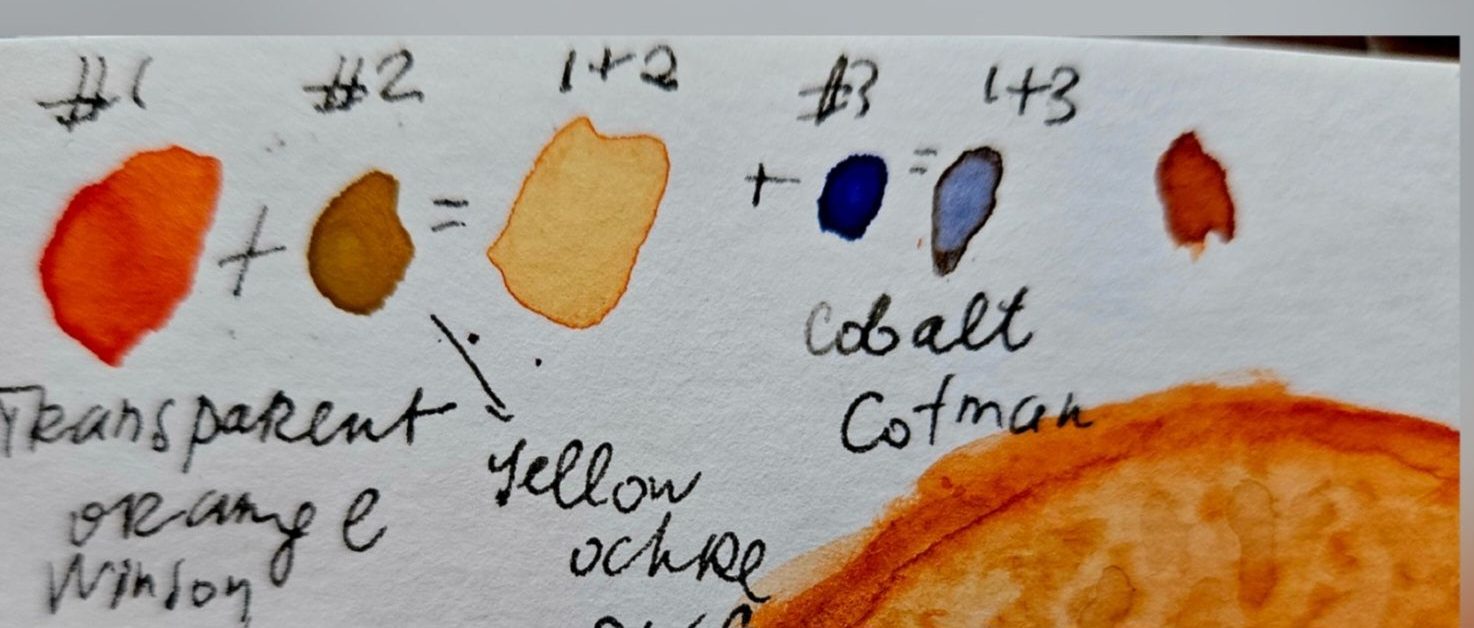 #1 #2 1+2 #3 1+3
+ = + =
Transparent
orange
Winson
Yellow
ochre
Cobalt
Cotman